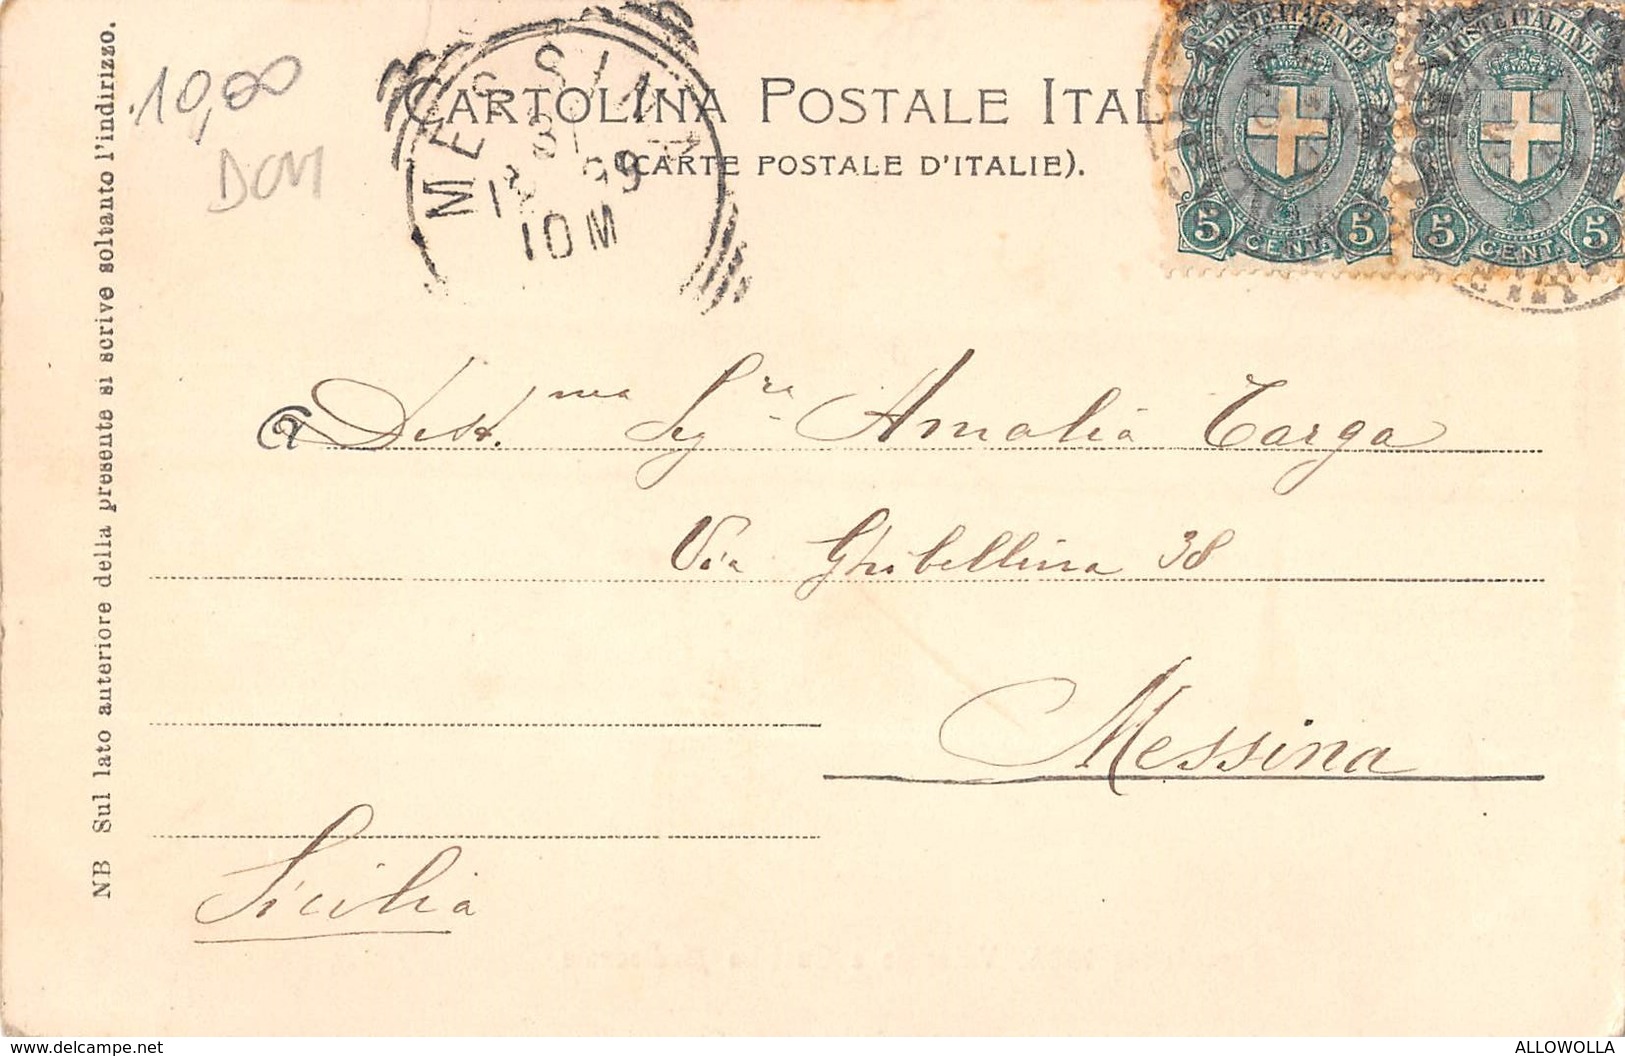 NB Sul lato anteriore della presente si scrive soltanto l'indirizzo.
10,00
DOM
MESSINA
10 M
CARTOLINA POSTALE ITAL
(CARTE POSTALE D'ITALIE).
POSTE ITALIANE
5 CENT. 5
POSTE ITALIANE
5 CENT. 5
Dist.ma Sig.ra Amalia Targa
Via Ghibellina 38
Messina
Sicilia
www.delcampe.net
ALLOWOLLA